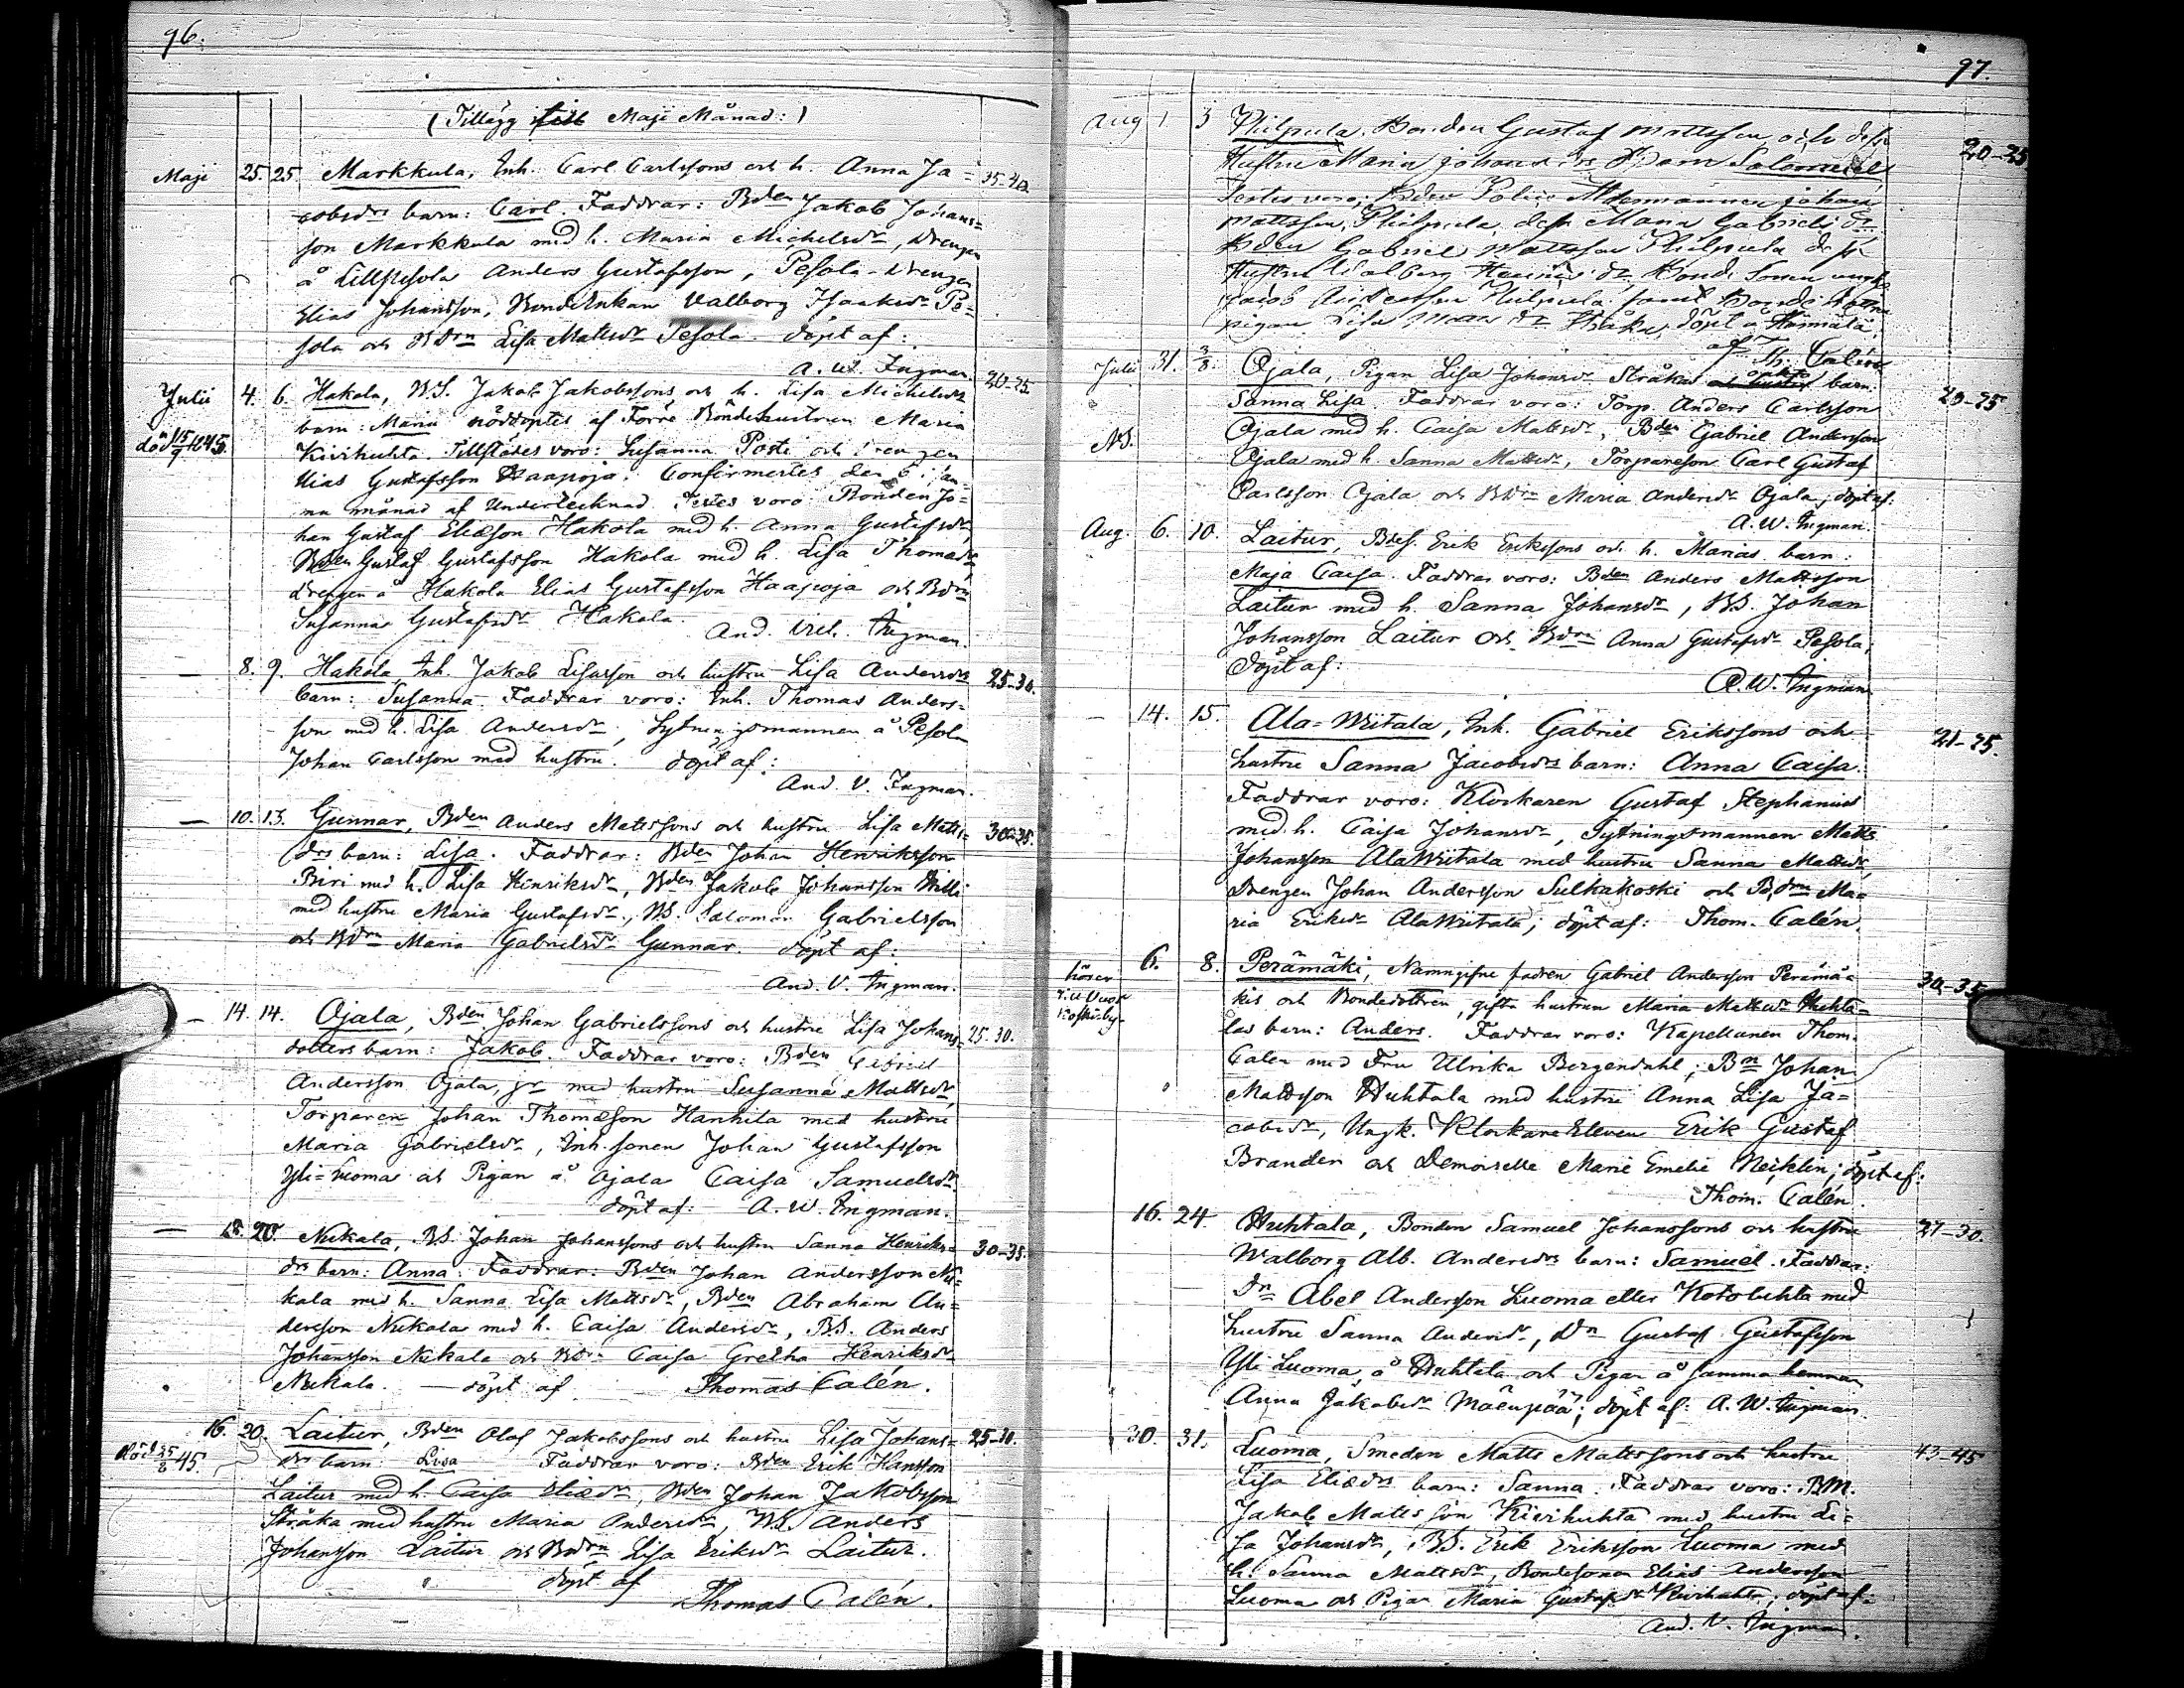 96.
(Tillägg till Maji Månad:)
Maji 25. 25. Markkula, Inh. Carl Carlssons och h. Anna Ja= 35-40.
cobsdrs barn: Carl Faddrar: Bden Jakob Johans=
son Markkula med h. Maria Michelsdr, Drengen
å Lillpesola Anders Gustafsson, Pesola-Drengen
Elias Johansson, BondEnkan Valborg Isaaksdr Pe=
sola och BDrn Lisa Mattsdr Pesola. döpt af:
A. W. Ingman.
Julii 4. 6. Hakola, B.S. Jakob Jakobssons och h. Lisa Michelsdrs 20-25.
barn: Maria nöddöptes af Förre Bondehustrun Maria
död 15/7 1845. Kivihuhta. Tillstädes voro: Susanna Posti och drengen
Elias Gustafsson Haapoja. Confirmertes den 6 i sam=
ma månad af Undertecknad. Testes voro Bonden Jo=
han Gustaf Eliæson Hakola med h. Anna Gustafsdr,
Bden Gustaf Gustafsson Hakola med h. Lisa Thomædr
drengen å Hakola Elias Gustafsson Haapoja och Bdrn
Susanna Gustafsdr Hakola.
And. Wilh. Ingman.
— 8. 9. Hakola, Inh. Jakob Esaisson och hustru Lisa Andersdrs 25-30.
barn: Susanna. Faddrar voro: Inh. Thomas Anders=
son med h. Lisa Andersdr, Sytningsmannen å Pesola
Johan Carlsson med hustru. döpt af:
And. V. Ingman.
— 10. 13. Gunnar, Bden Anders Matssons och hustru Lisa Matts= 30-35.
drs barn: Lisa. Faddrar: Bden Johan Henriksson
Biri med h. Lisa Henriksdr, Bden Jakob Johansson Willi
med hustru Maria Gustafsdr, B.S. Salomon Gabrielsson
och BDrn Maria Gabrielsdr Gunnar. döpt af:
And. V. Ingman.
— 14. 14. Ojala, Bden Johan Gabrielssons och hustru Lisa Johans= 25-30.
dotters barn: Jakob. Faddrar voro: Bden Gabriel
Andersson Ojala, jr med hustru Susanna Mattsdr,
Torparen Johan Thomæson Hanhila med hustru
Maria Gabrielsdr, Inh. sonen Johan Gustafsson
Yli=Luoma och Pigan å Ojala Caisa Samuelsdr.
döpt af: A. W. Ingman.
— 18. 20. Nukala, B.S. Johan Johanssons och hustru Sanna Henriks= 30-35.
drs barn: Anna. Faddrar: Bden Johan Andersson Nu=
kala med h. Sanna Lisa Mattsdr, Bden Abraham An=
dersson Nukala med h. Caisa Andersdr, B.S. Anders
Johansson Nukala och Bdrn Caisa Gretha Henriksdr
Nukala. — döpt af Thomas Calén.
16. 20. Laitur, Bden Olof Jakobssons och hustru Lisa Johans= 25-30.
död 25/8 45. drs barn: Lisa Faddrar voro: Bden Erik Hansson
Laitur med h. Caisa Eliædr, Bden Johan Jakobsson
Stråka med hustru Maria Andersdr, B.S. Anders
Johansson Laitur och Bdrn Lisa Eriksdr Laitur.
döpt af
Thomas Calén.
97.
Aug 1 3 Philpula. Bonden Gustaf Mattsson och dess 20-25
Hustru Maria Johansdrs Barn Salomon
Testes voro; Bden Police Åldermannen Johan
Mattsson, Philpula, dess Maria Gabriels dr
Bden Gabriel Mattsson Philpula dess
Hustru Walborg dr, Bonde Sonen
Jacob Philpula samt Bonde dottren
pigan Lisa dr Stråka, döpt å
af Th. Calén
Julii 31. 3/8. Ojala, Pigan Lisa Johansdr Stråkas oäkta barn: 20-25
Sanna Lisa. Faddrar voro: Torp. Anders Carlsson
NS. Ojala med h. Caisa Mattsdr, Bden Gabriel Andersson
Ojala med h. Sanna Mattsdr, Torpareson Carl Gustaf
Carlsson Ojala och BDrn Maria Andersdr Ojala; döpt af:
A. W. Ingman.
Aug. 6. 10. Laitur, Bdes. Erik Erikssons och h. Marias barn:
Maja Caisa. Faddrar voro: Bden Anders Mattsson
Laitur med h. Sanna Johansdr, B.S. Johan
Johansson Laitur och Bdrn Anna Gustafsdr Pesola,
döpt af:
A. W. Ingman
— 14. 15. Ala=Wiitala, Inh. Gabriel Erikssons och 21-25.
hustru Sanna Jacobsdrs barn: Anna Caisa.
Faddrar voro: Klockaren Gustaf Stephanius
med h. Caisa Johansdr, Sytningsmannen Matts
Johansson AlaWiitala med hustru Sanna Mattsdr,
Drengen Johan Andersson Sulkakoski och B.drn Ma=
ria Eriksdr AlaWiitala; döpt af: Thom. Calén.
6. 8. Perämäki, Namngifne fadren Gabriel Andersson Perämä= 30-35
hörer
till Vuos
koskisby. kis och Bondedottren, gifta hustrun Maria Mattsdr Huhta=
las barn: Anders. Faddrar voro: Kapellanen Thom.
Calen med Fru Ulrika Bergendahl; Bn Johan
Mattsson Huhtala med hustru Anna Lisa Ja=
cobsdr, Ungk. Klockare Eleven Erik Gustaf
Brander och Demoiselle Marie Emelie Neiklin; döpt af:
Thom. Calén
16. 24. Huhtala, Bonden Samuel Johanssons och hustru 27-30.
Walborg Alb. Andersdrs barn: Samuel. Faddrar:
Dn Abel Andersson Luoma eller Kotoluhta med
hustru Sanna Andersdr, Dn Gustaf Gustafsson
Yli Luoma, å Huhtala och Pigan å samma hemman
Anna Jakobsdr Mäenpää; döpt af: A. W. Ingman.
30. 31. Luoma, Smeden Matts Mattssons och hustru 43-45
Lisa Eliædrs barn: Sanna. Faddrar voro: BM.
Jakob Mattsson Kivihuhta med hustru Li=
sa Johansdr, B.S. Erik Eriksson Luoma med
h. Sanna Mattsdr, Bondesonen Elias Andersson
Luoma och Pigan Maria Gustafsdr Kivihuhta; döpt af:
And. V. Ingman.